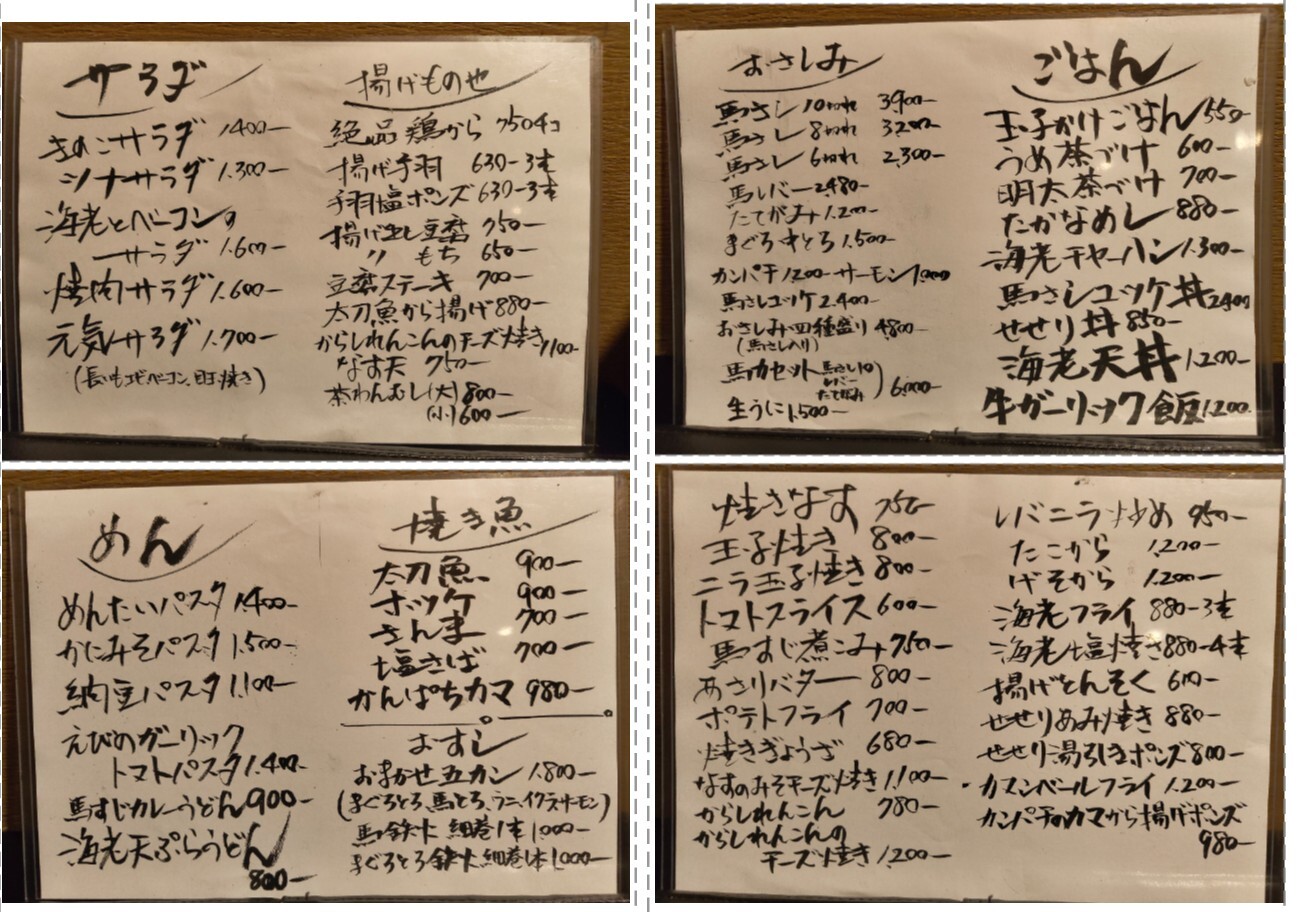 サラダ
きのこサラダ 1.400-
ツナサラダ 1.300-
海老とベーコンの
サラダ 1.600-
焼肉サラダ 1.600-
元気サラダ 1.700-
(長いも、エビ、ベーコン、玉子焼き)
揚げもの也
絶品鶏から 750 4コ
揚げ手羽 630-3本
手羽塩ポンズ 630-3本
揚げ出し豆腐 750-
〃 もち 650-
豆腐ステーキ 700-
太刀魚から揚げ 880-
からしれんこんのチーズ焼き 1100-
なす天 750-
茶わんむし(大) 800-
(小) 600-
おさしみ
馬さし 10切れ 3900-
馬さし 8切れ 3200-
馬さし 6切れ 2,300-
馬レバー 2480-
たてがみ 1.200-
まぐろ中とろ 1.500-
カンパチ 1200- サーモン 1.000
馬さしユッケ 2.400-
おさしみ四種盛り 4800-
(馬さし入り)
馬力セット 馬さし10
レバー
たてがみ ) 6,000-
生うに 1,500-
ごはん
玉子かけごはん 550-
うめ茶づけ 600-
明太茶づけ 700-
たかなめし 880-
海老チャーハン 1.300-
馬さしユッケ丼 2400
せせり丼 850-
海老天丼 1.200-
牛ガーリック飯 1200.
めん
めんたいパスタ 1,400-
かにみそパスタ 1,500-
納豆パスタ 1,100-
えびのガーリック
トマトパスタ 1.400-
馬すじカレーうどん 900-
海老天ぷらうどん
800-
焼き魚
太刀魚 900-
ホッケ 900-
さんま 700-
塩さば 700-
かんぱちカマ 980-
おすし
おまかせ五カン 1.800-
(まぐろとろ、馬とろ、ウニ、イクラ、サーモン)
馬鉄火 細巻1本 1000-
まぐろとろ鉄火 細巻1本 1.000-
焼きなす 750-
玉子焼き 800-
ニラ玉子焼き 800-
トマトスライス 600-
馬すじ煮こみ 750-
あさりバター 800-
ポテトフライ 700-
焼きぎょうざ 680-
なすのみそチーズ焼き 1,100-
からしれんこん 780-
からしれんこんの
チーズ焼き 1,200-
レバニラ炒め 950-
たこから 1.200-
げそから 1.200-
海老フライ 880-3本
海老塩焼き 880-4本
揚げとんそく 600-
せせりあみ焼き 880-
せせり湯引きポンズ 800-
・カマンベールフライ 1.200-
カンパチのカマから揚げポンズ
980-